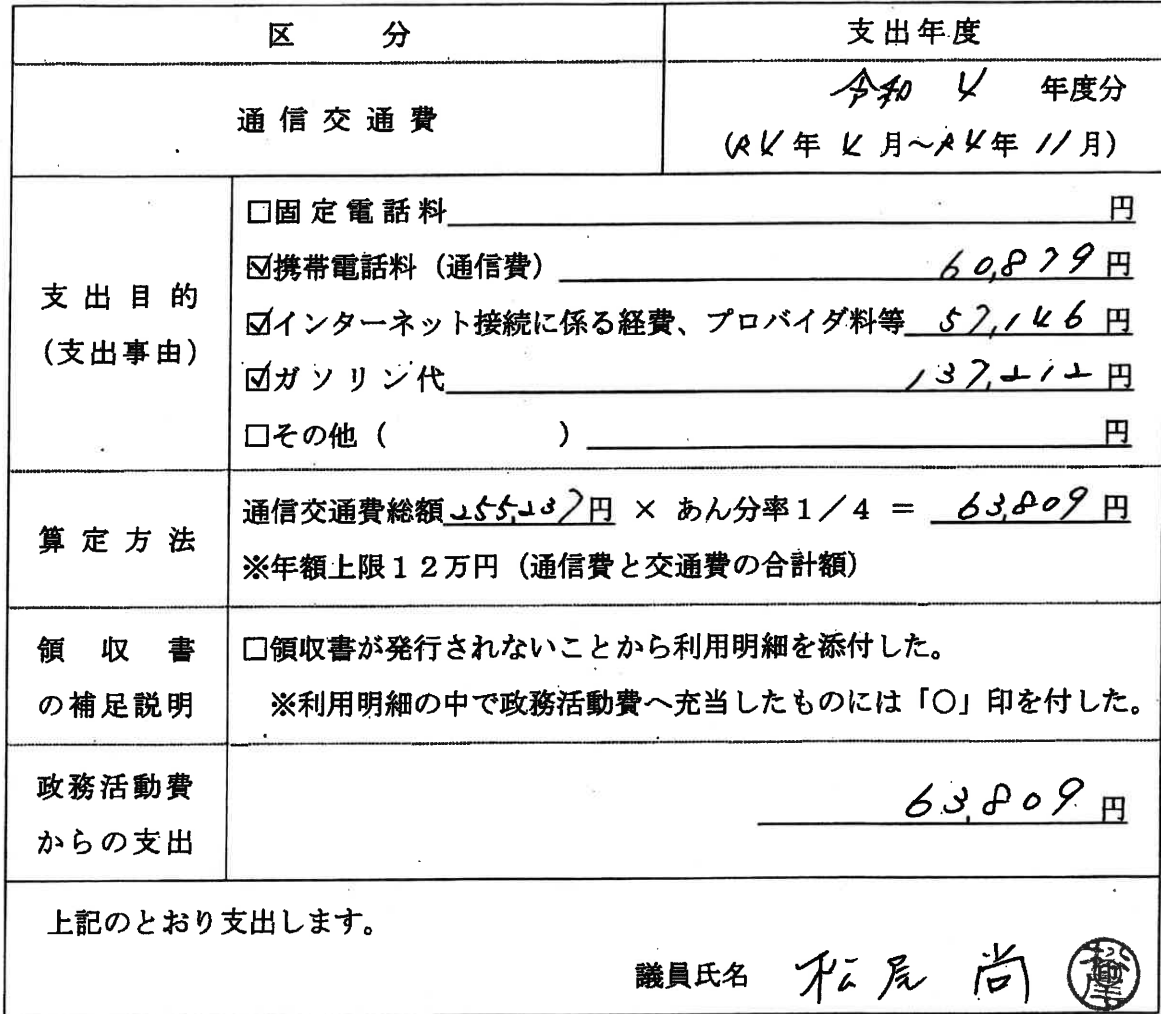 区 分
支出年度
通信交通費
令和 4 年度分
(R4年 4月～R4年 11月)
支出目的
(支出事由)
□固定電話料 円
☑携帯電話料（通信費） 60,879円
☑インターネット接続に係る経費、プロバイダ料等 57,146円
☑ガソリン代 137,212円
□その他（ ） 円
算定方法
通信交通費総額255,237円 × あん分率1／4 ＝ 63,809円
※年額上限12万円（通信費と交通費の合計額）
領収書
の補足説明
□領収書が発行されないことから利用明細を添付した。
※利用明細の中で政務活動費へ充当したものには「○」印を付した。
政務活動費
からの支出
63,809円
上記のとおり支出します。
議員氏名 松尾 尚